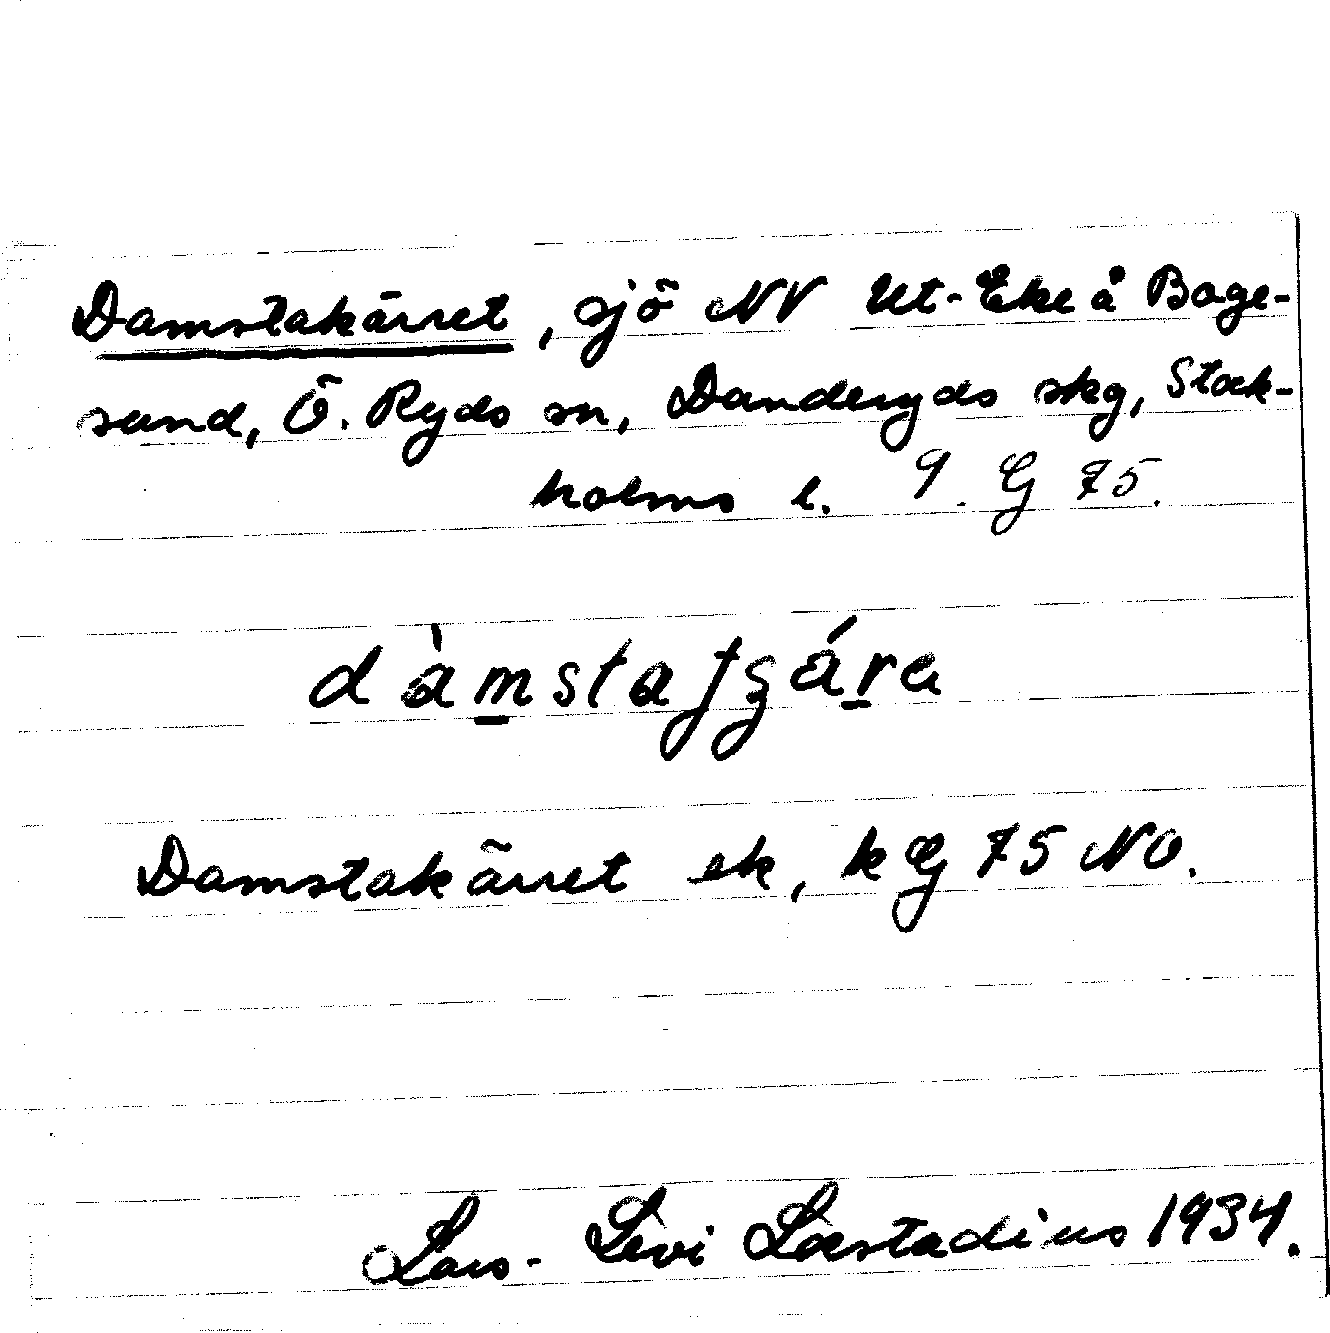 Damstakärret, sjö NV Ut-Eke å Boge-
sund, Ö. Ryds sn, Danderyds skg, Stock-
holms l. 9. G 75.
dàmstatʃʒára
Damstakärret ek, k G 75 NO.
Lars-Levi Læstadius 1934.